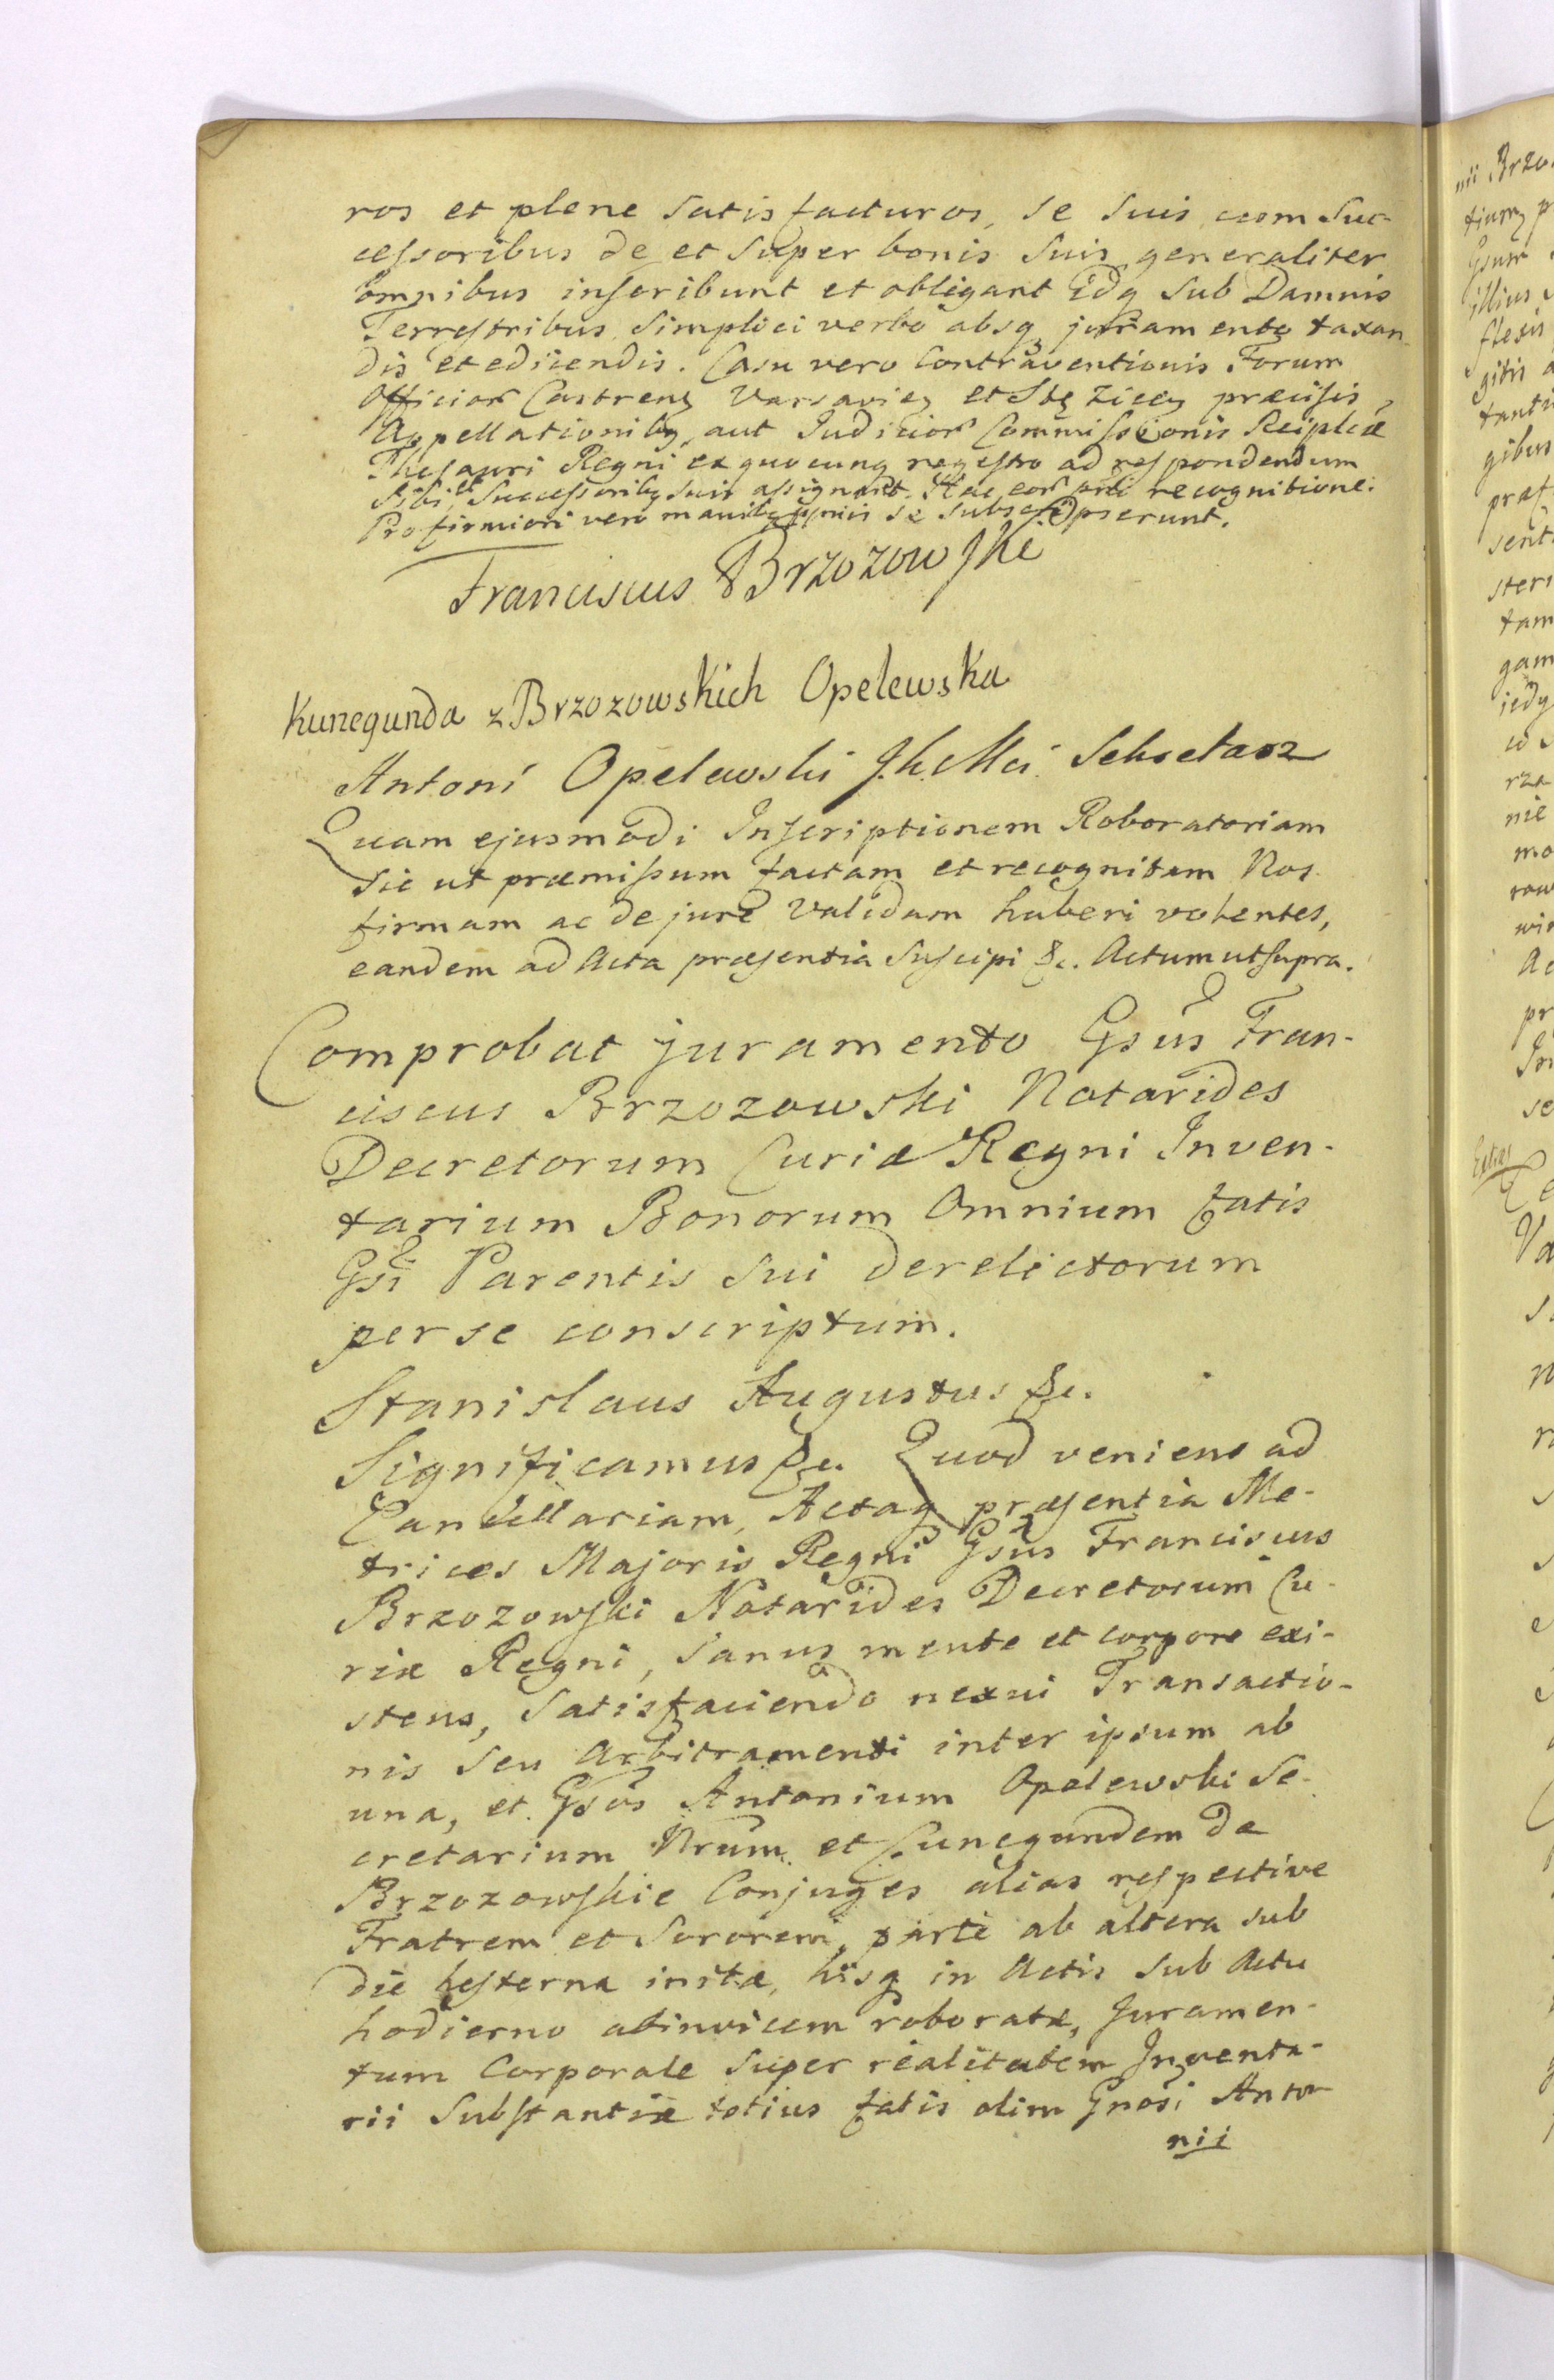 ros et plene satisfacturos, se suis cum Suc-
cessoribus de et super bonis suis generaliter
omnibus inscribunt et obligant idq sub Damnis
Terrestribus simplici verbo absq juramento taxan
dis et edicendis. Casu vero Contraventionis Forum
Officior Castren Varsavien et præcisis
Appellationibq aut Judicior Commissionis Reiplcæ
Thesauri Regni ex quocunq regestro ad respondendum
Sibi et Successoribq suis assignant. Hac eor pnti recognitione.
Pro firmiori vero manibq se subscripserunt.
Franciscus Brzozowski
Kunegunda z Brzozowskich Opelewska
Antoni Opelewski J.K.Mci Sekretarz
Quam ejusmodi Inscriptionem Roboratoriam
sic ut præmissum factam et recognitam Nos
firmam ac de jure validam haberi volentes,
eandem ad Acta præsentia suscipi &c. Actum ut supra.
Comprobat juramento Gsus Fran-
ciscus Brzozowski Notarides
Decretorum Curiæ Regni Inven-
tarium Bonorum Omnium fatis
Gsi Parentis sui derelictorum
per se conscriptum.
Stanislaus Augustus &c.
Significamus &c. Quod veniens ad
Cancellariam, Actaq præsentia Me-
trices Majoris Regni Gsus Franciscus
Brzozowski Notarides Decretorum Cu-
riæ Regni, sanus mente et corpore exi-
stens, satisfaciendo nexui Transactio-
nis seu Arbitramenti inter ipsum ab
una, et Gsos Antonium Opelewski Se-
cretarium Nrum et Cunegundem de
Brzozowskie Conjuges alias respective
Fratrem et Sororem, parte ab altera sub
die hesterna initæ, hisq in Actis sub Actu
hodierno abinvicem roboratæ, Juramen-
tum Corporale super realitatem Inventa-
rii Substantiæ totius fatis olim Gnosi Anto-
nii